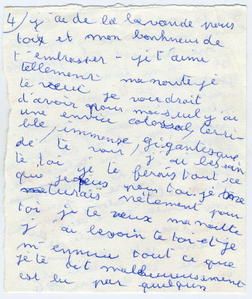 4/ y a de la lavande pour
toi et mon bonheur de
t'embrasser - je t'aime
tellement ma
te veux je voudrait
d'avoir pour moi seul y au
une envie colossal, terri-
ble, immense, gigantesque
de te voir, y ai besoin
te toi je te ferais tout ce
que je pour toi je
nètement pour
toi je te veux ma
y ai besoin te toi et je
m'ennuie tout ce que
je te dit malheureusement
est lu par quelqun